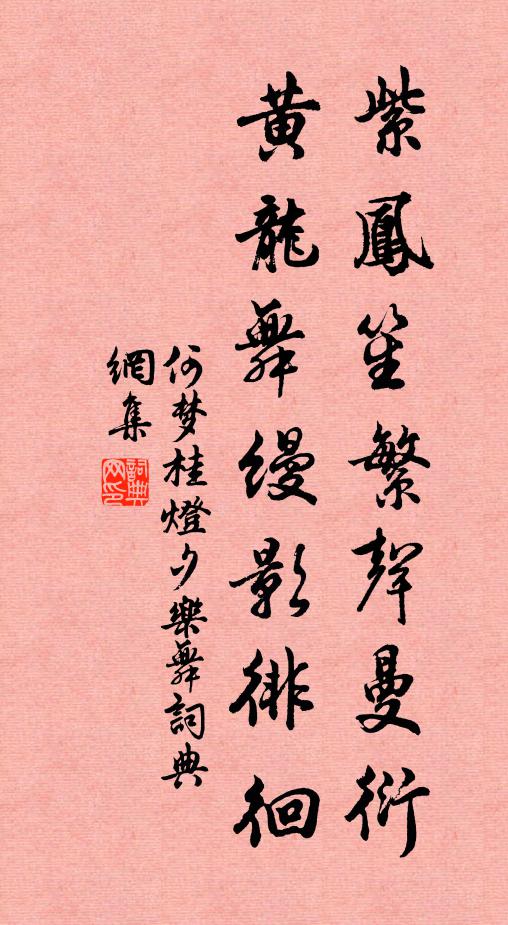 紫鳳笙繁聲曼衍
黃龍舞縵影徘徊
何梦桂燈夕樂舞詞典
網集
詞典
网印